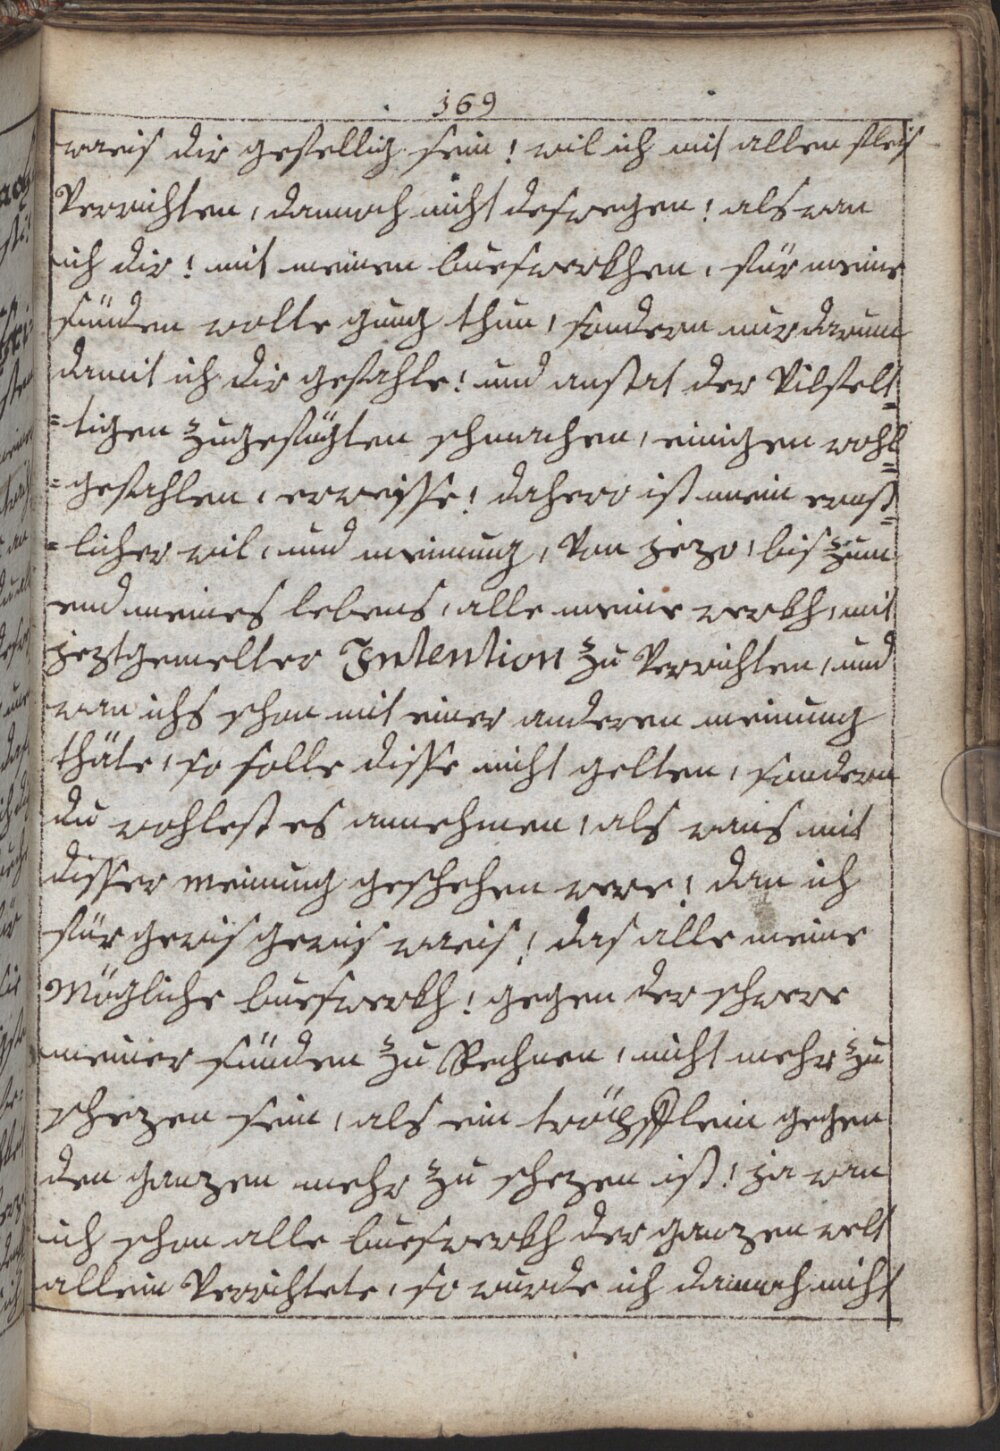 369
weis dir gefellig sein! wil ich mit allen fleis
Verrichten, dannoch nicht deswegen! als wan
ich dir! mit meinen bueswerkhen, für meine
sünden wolte gnug thun, sondern nur darum
damit ich dir gefahle! und anstat der Vilfelt=
=tigen zugefügten schmachen, einigen wohl=
=gefahlen, erweisse! dahero ist mein ernst=
=licher wil, und meinung, Von jezo, bis zum
end meines lebens, alle meine werkh, mit
jeztgemelter Intention zu Verrichten, und
wan ichs schon mit einer anderen meinung
thäte, so solle disse nicht gelten, sondern
du wohlest es annehmen, als wans mit
disser meinung geschehen were! dan ich
für gewis gewis weis! das alle meine
Mögliche bueswerkh! gegen der schwere
meiner sünden zu Rechnen, nicht mehr zu
schezen sein, als ein tröpfflein gegen
den ganzen mehr zu schezen ist! ja wan
ich schon alle bueswerkh der ganzen welt
allein Verrichtete, so wurde ich dannoch nicht